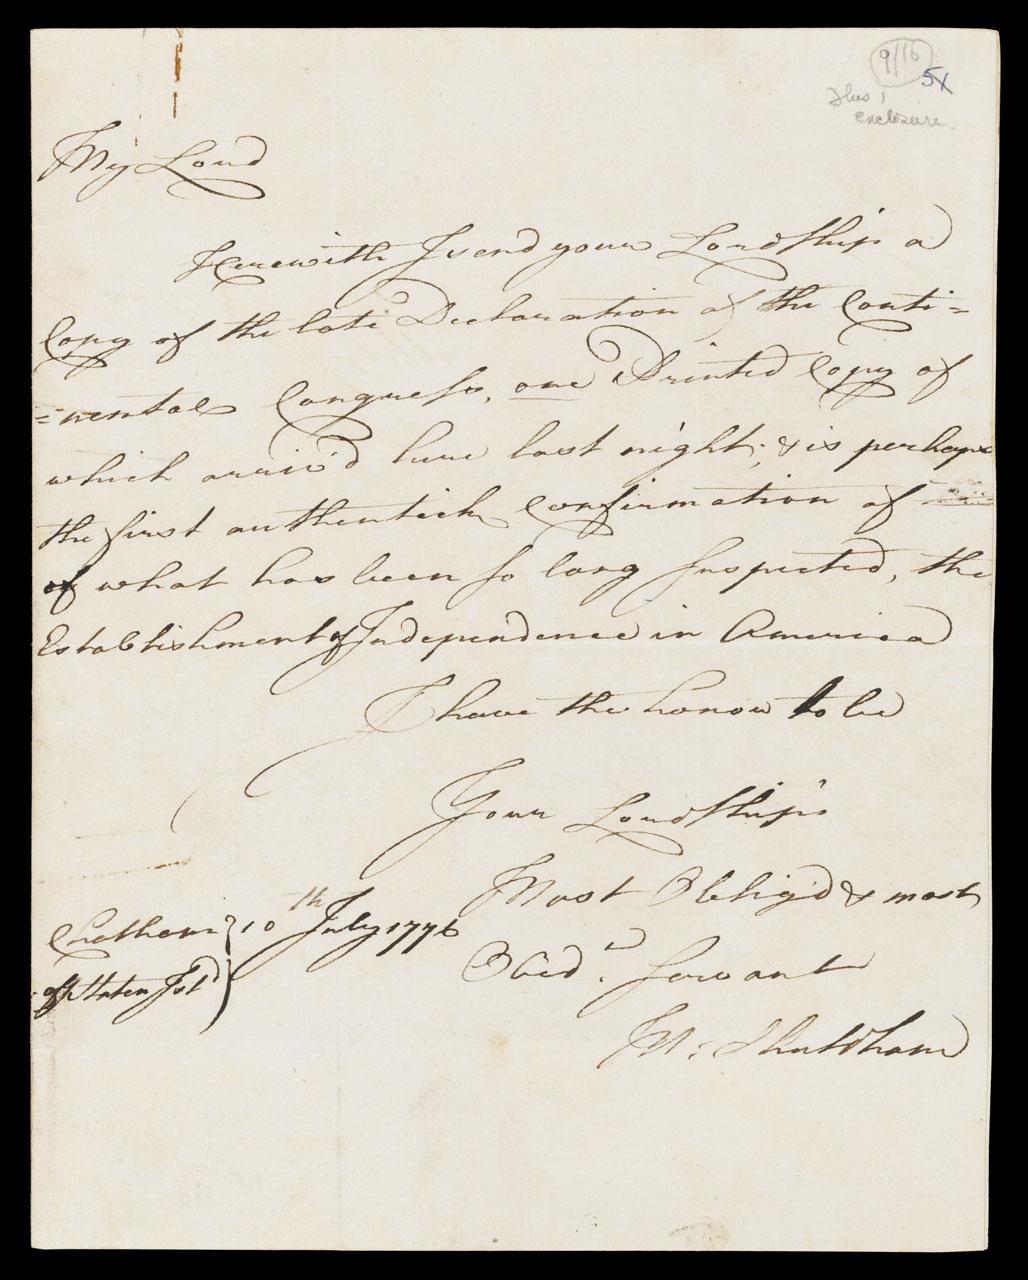 9/16
5X
Plus 1
enclosure.
My Lord
Herewith I send your Lordship a
Copy of the late Declaration of the Conti=
=nental Congress, one Printed Copy of
which arriv'd here last night; & is perhaps
the first authentick Confirmation of
of what has been so long suspected, the
Establishment of Independence in America
I have the honor to be
Your Lordship's
Most Obligd & most
Obedt. servant
M: Shuldham
Chatham } 10th July 1776
off Staten Isld }